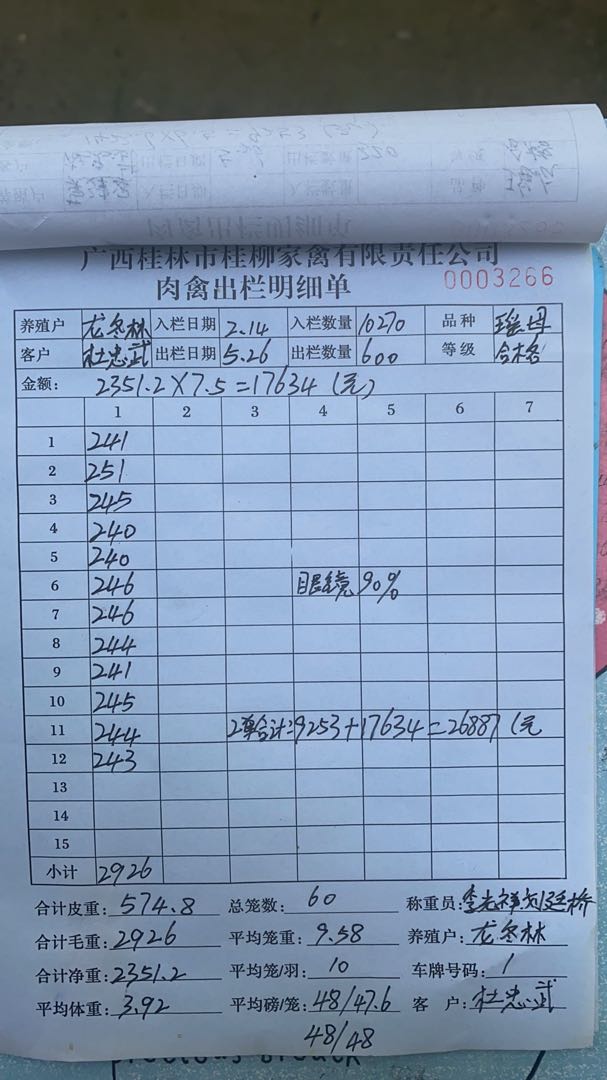 广西桂林市桂柳家禽有限责任公司
肉禽出栏明细单 0003266
养殖户 龙冬林 入栏日期 2.14 入栏数量 10270 品种 瑶母
客户 杜忠武 出栏日期 5.26 出栏数量 600 等级 合格
金额: 2351.2×7.5=17634(元)
1 2 3 4 5 6 7
1 241
2 251
3 245
4 240
5 240
6 246 眼镜90%
7 246
8 244
9 241
10 245
11 244 2单合计:9253+17634=26887(元
12 243
13
14
15
小计 2926
合计皮重: 574.8 总笼数: 60 称重员:
合计毛重: 2926 平均笼重: 9.58 养殖户: 龙冬林
合计净重: 2351.2 平均笼/羽: 10 车牌号码: 1
平均体重: 3.92 平均磅/笼: 48/47.6 客 户: 杜忠武
48/48